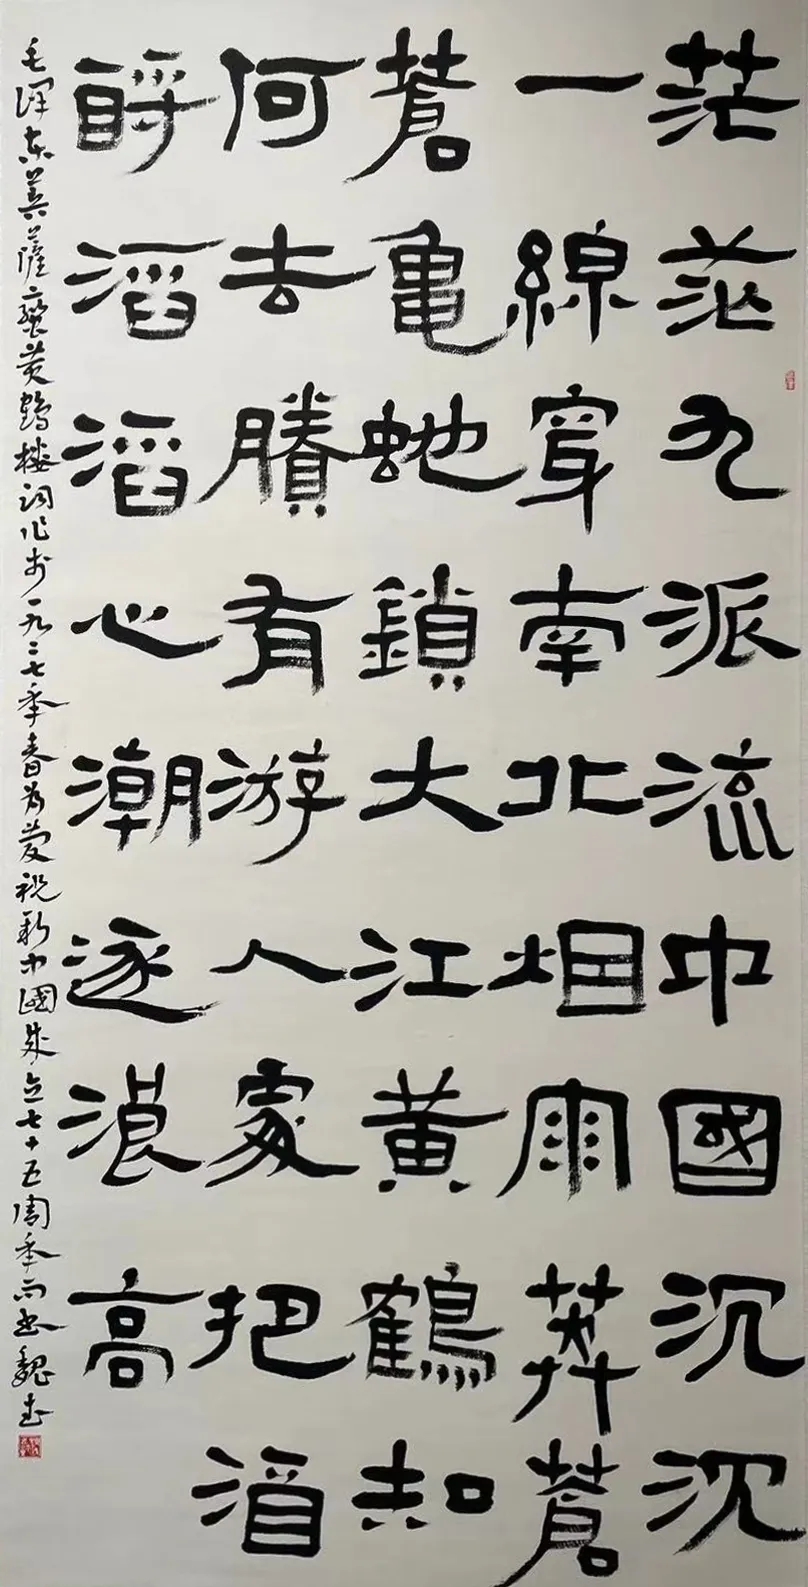 茫茫九派流中國沉沉
一線穿南北烟雨莽蒼
蒼亀虵鎖大江黃鶴知
何去賸有游人處把酒
酹滔滔心潮逐浪高
毛澤東菩薩蠻黃鶴樓詞作於一九二七年春为慶祝新中國成立七十五周年而書魏